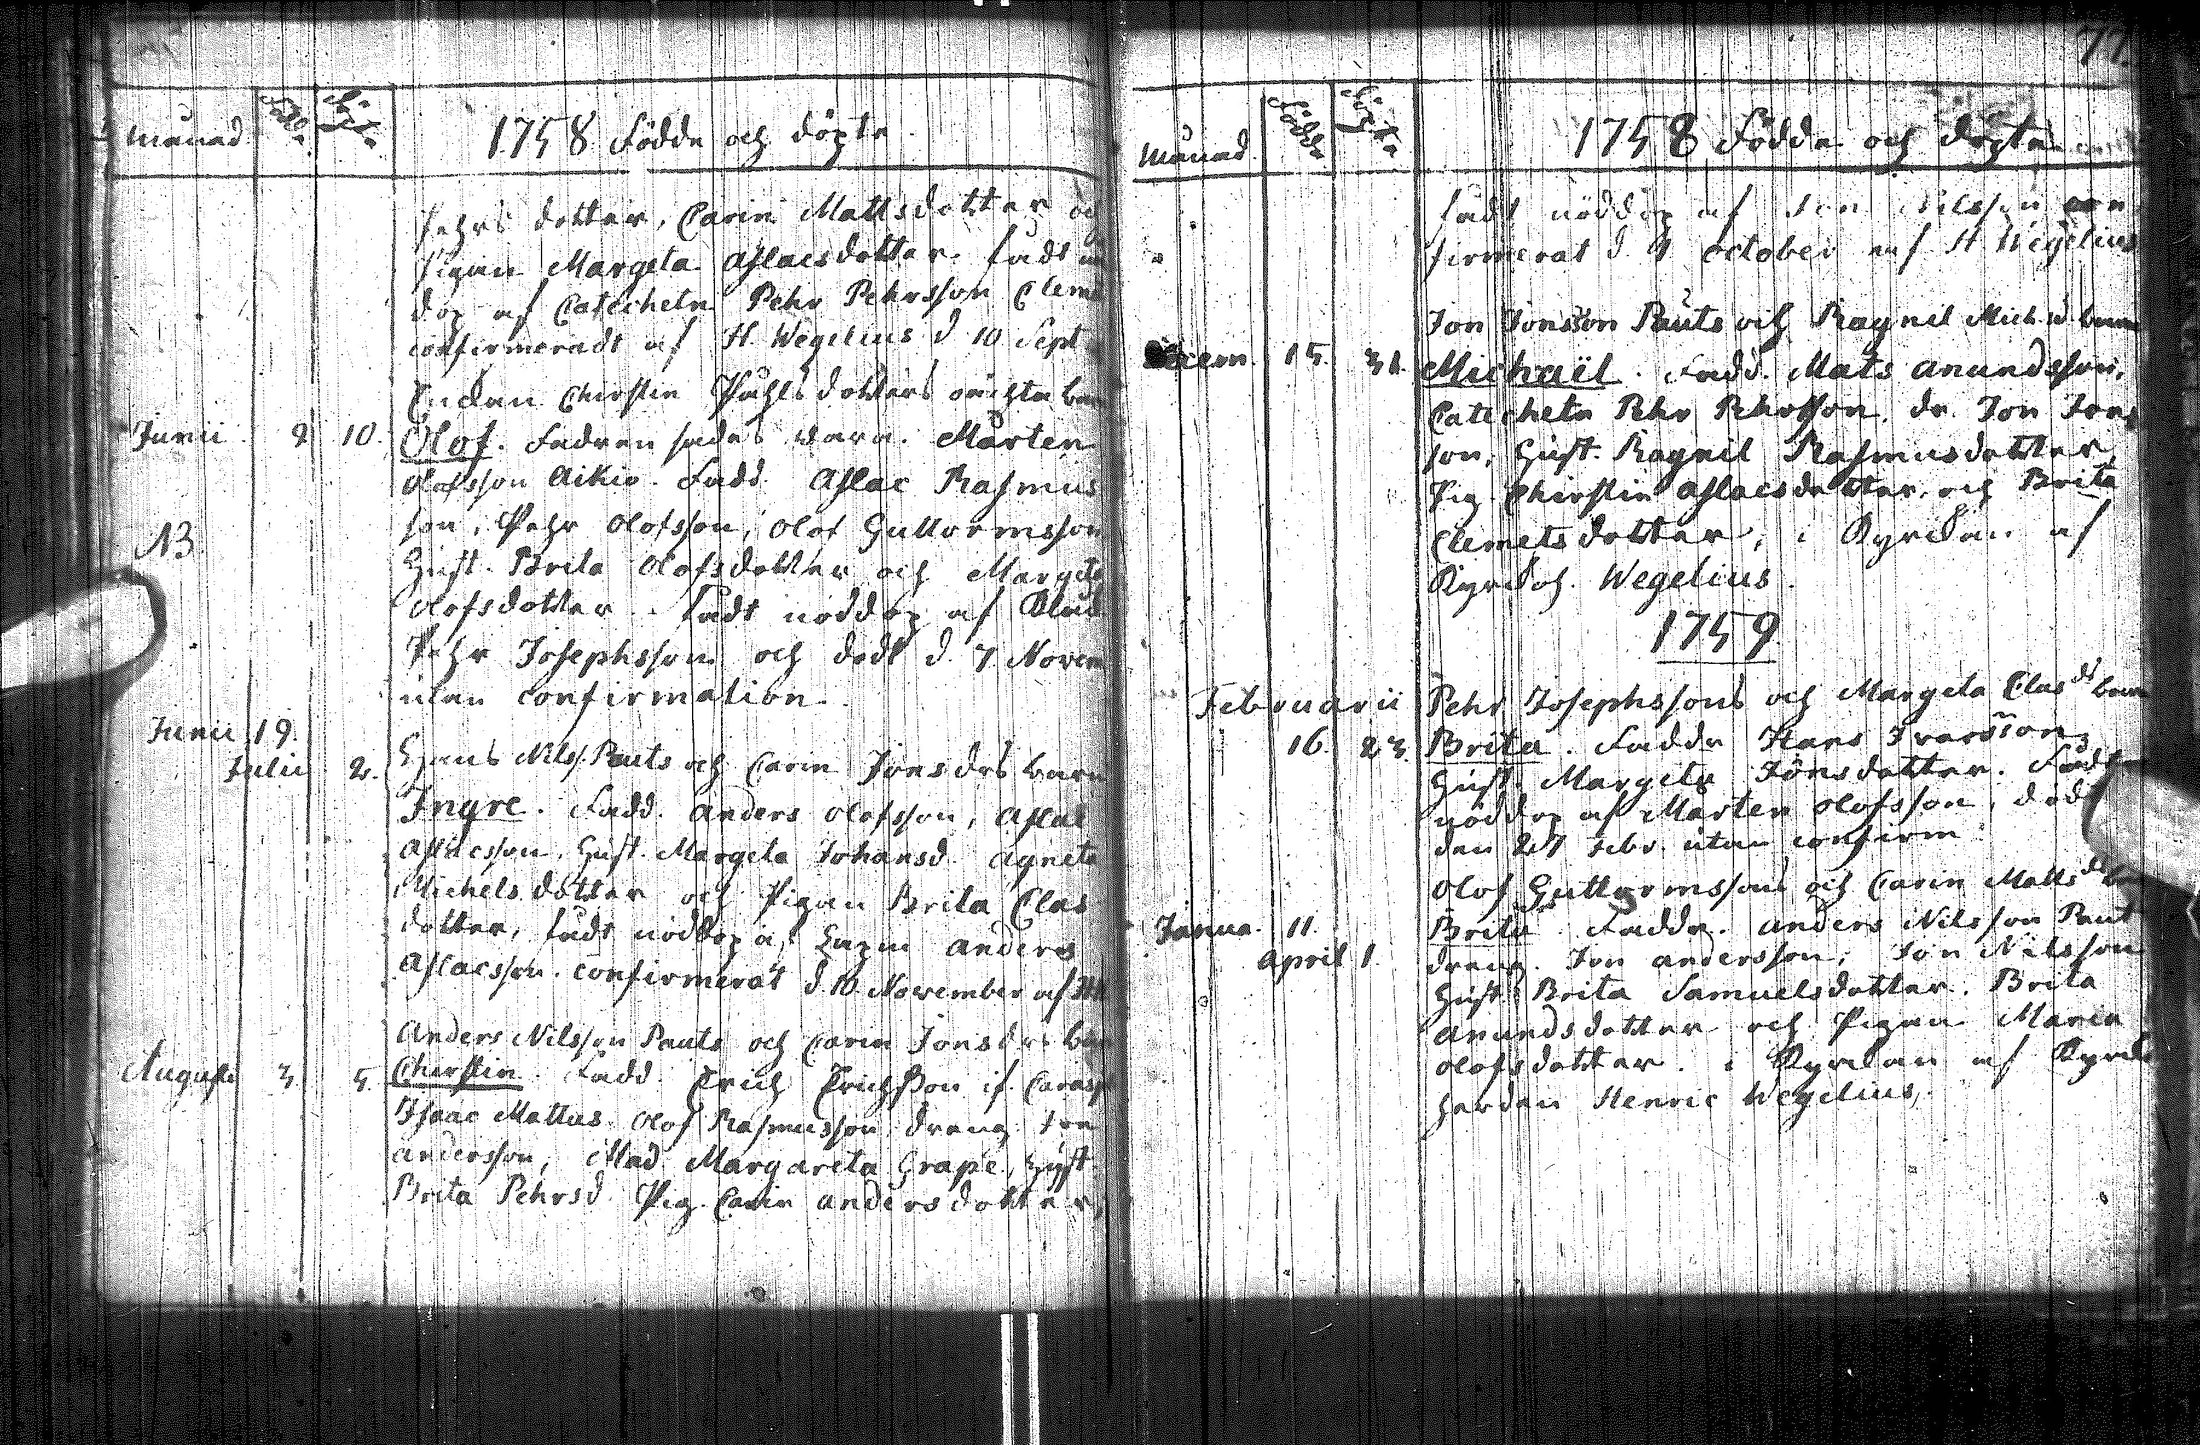 Månad Födde Döpte 1758 Födde och döpte
Pehrs dotter, Carin Mattsdotter och
Pigan Margeta Aslacsdotter. fådt nö
dop af Catecheten Pehr Pehrsson Cleme
confirmeradt af H. Wegelius d 10 Sept
Enckan Chirstin Påhls dotters oächta barn
Junii 9 10. Olof. Fadren sades vara Mårten
Olofsson Aikio. Fadd. Aslac Rasmus
son, Pehr Olofsson, Olof Guttormsson
NB
Hust. Brita Olofsdotter och Margeta
Olofsdotter. fådt nöddop af
Pehr Josephsson och dödt d. 7 Novem
utan confirmation.
Junii 19.
Julii 2. Hans Nils. Pauts och Carin Jonsdrs barn
Ingre. Fadd. Anders Olofsson, Aslac
Aslacsson, Hust. Margeta Johansd. Agneta
Michelsdotter och Pigan Brita Clas
dotter, fådt nöddop af Anders
Aslacsson. confirmerat d. 10 November af
Anders Nilsson Pauts och Carin Jonsdrs barn
Augusti 3. 5. Chirstin. Fadd. Erich Erichsson if.
Isaac Mattus. Olof Rasmusson, dreng Jon
Andersson, Mad. Margareta Grape, Hust
Brita Pehrsd. Pig. Carin Andersdotter,
77.
Månad Födde Döpte 1758 Födde och döpte
fådt nöddop af Jon Nilsson con
firmerat d. 9 October af H Wegelius
Jon Jonsson Pauts och Ragnil Michsd. barn
15. 31. Michaël. Fadd. Mats Anundsson,
Catecheten Pehr Pehrsson, dr. Jon Jons
son, Hust. Ragnil Rasmusdotter,
Pig. Chirstin Aslacsdotter, och Brita
Clemetsdotter, i Kyrckan af
Kyrckoh. Wegelius.
1759
Februarii Pehr Josephssons och Margeta Clas ds barn
16. 23. Brita. Fadde Hans Ivarsson,
Hust. Margeta Jönsdotter. Fådt
nöddop af Mårten Olofsson, död
den 27 Febr. utan confirm
Olof Guttormssons och Carin Matts ds
Janua. 11. Brita. Fadde. Anders Nilsson Paut
April 1. dreng. Jon Andersson, Jon Nilsson
Hust. Brita Samuelsdotter. Brita
Anundsdotter och Pigan Maria
Olofsdotter. i Kyrckan af Kyrcko
herden Henric Wegelius,